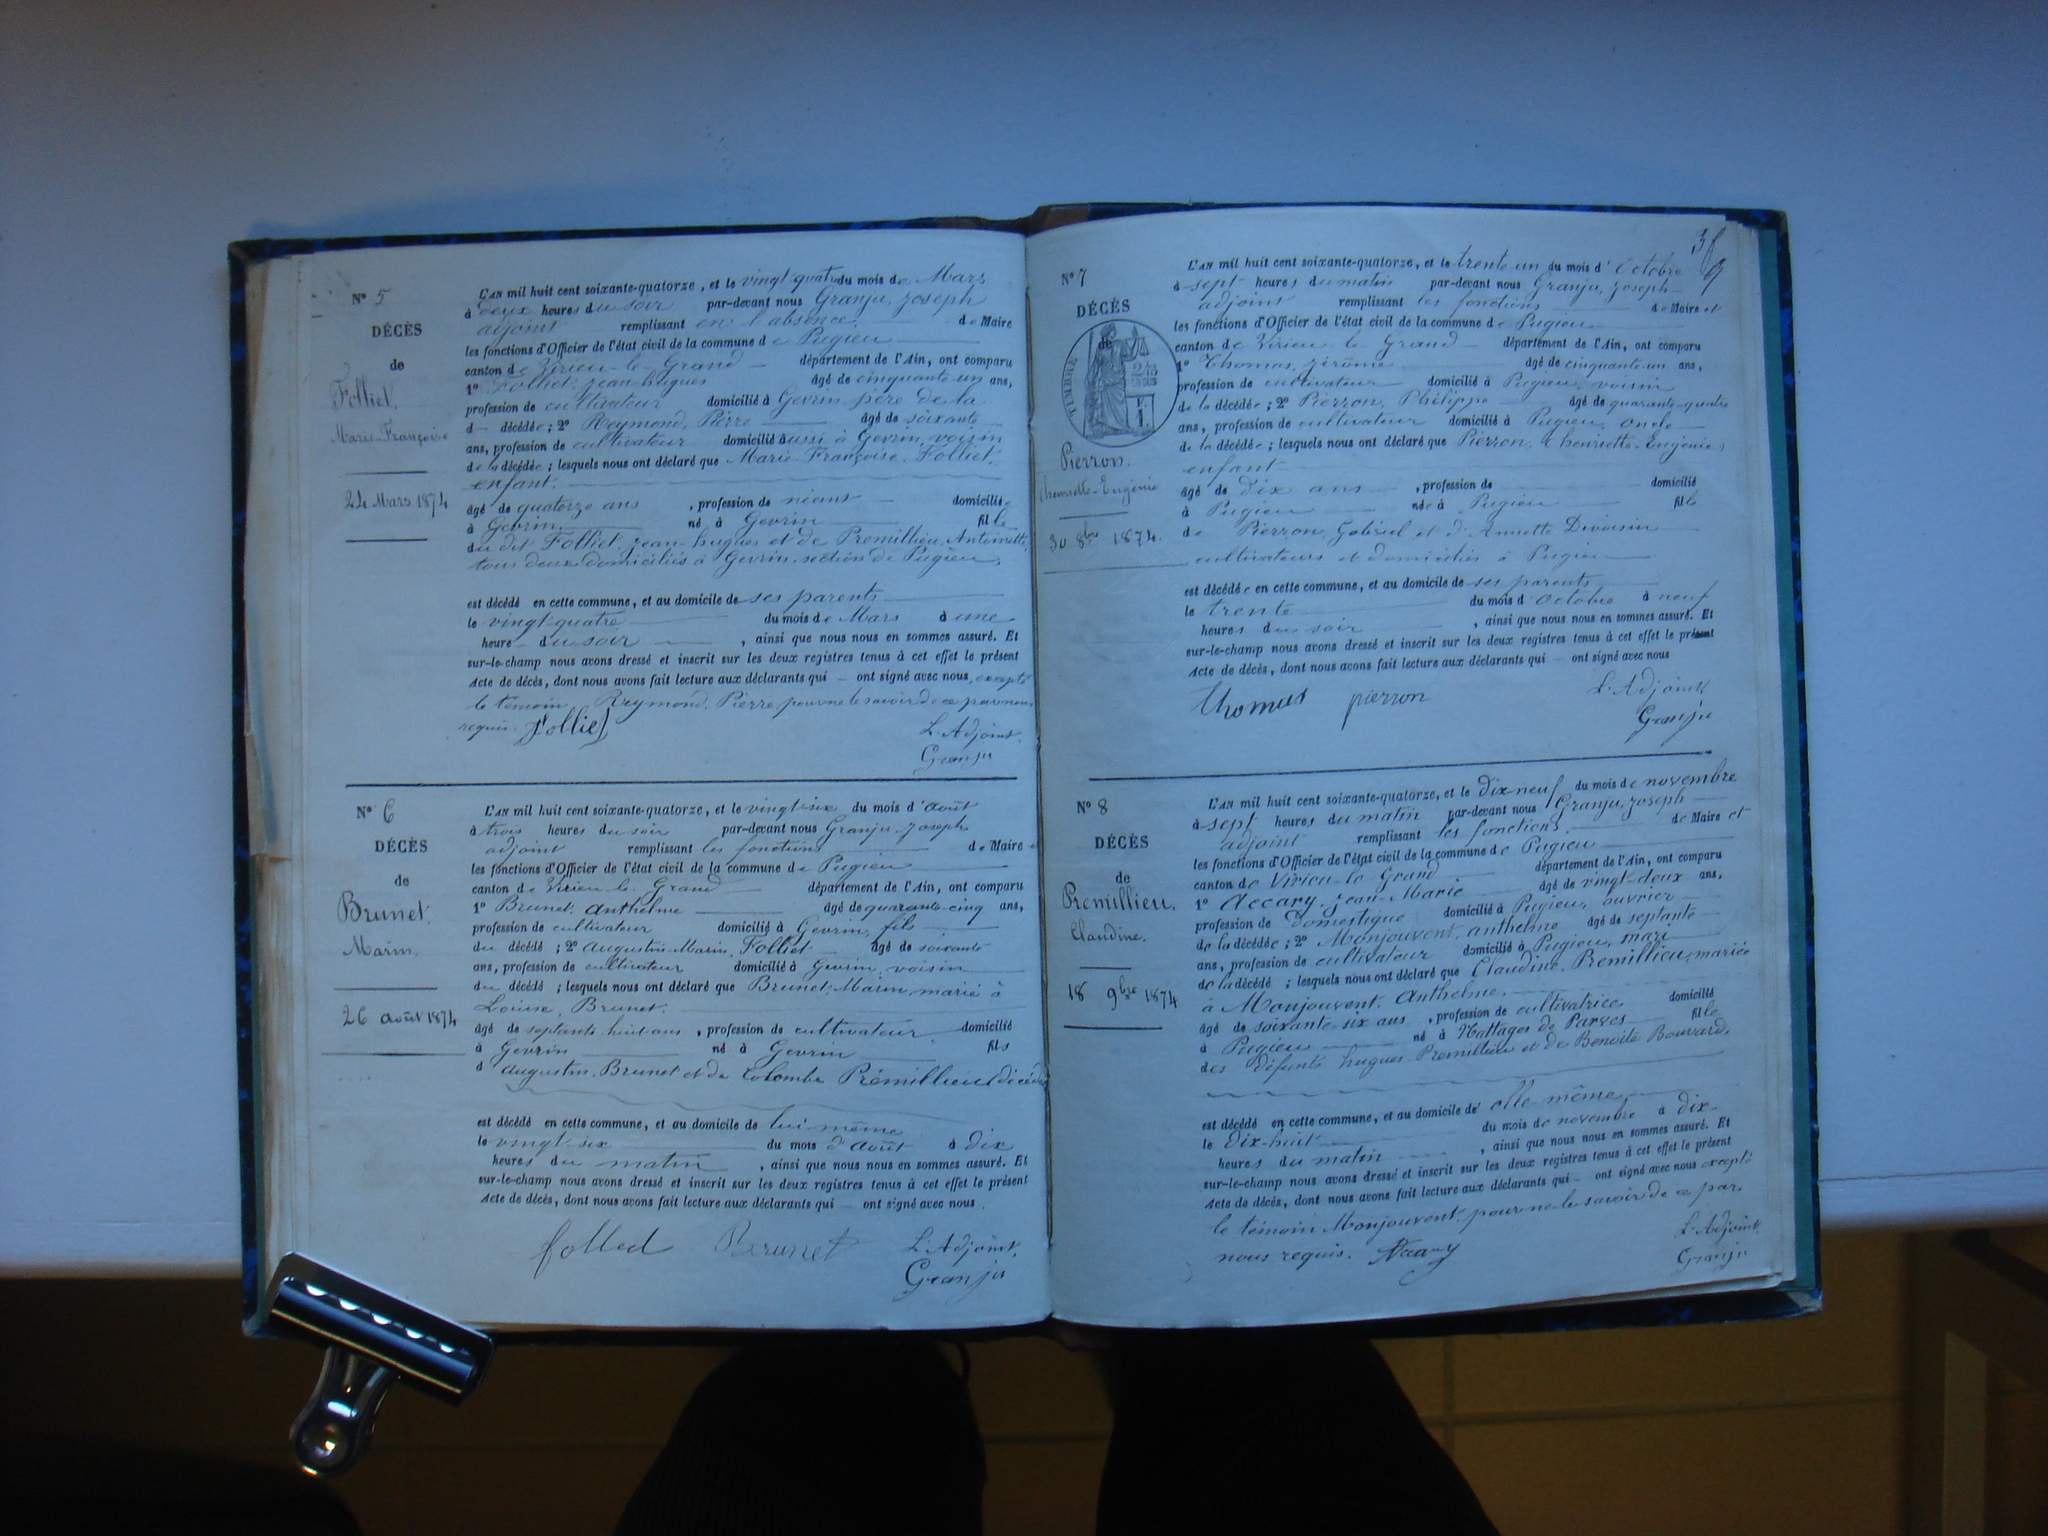 N° 5
DÉCÈS
de
Folliet,
Marie-Françoise
24 Mars 1874
L'AN mil huit cent soixante-quatorze, et le vingt-quatre du mois de Mars
à deux heures du soir par-devant nous Granju, Joseph
adjoint remplissant en l'absence de Maire
les fonctions d'Officier de l'état civil de la commune de Pugieu
canton de Virieu-le-Grand département de l'Ain, ont comparu
1° Folliet, Jean-hugues âgé de cinquante-un ans,
profession de cultivateur domicilié à Gevrin père de la
d décédée ; 2° Reymond, Pierre âgé de soixante
ans, profession de cultivateur domicilié aussi à Gevrin, voisin
de la décédée ; lesquels nous ont déclaré que Marie Françoise Folliet,
enfant.
âgé de quatorze ans , profession de néant domiciliée
à Gevrin né à Gevrin fille
du dit Folliet, Jean-hugues et de Prémillieu, Antoinette
tous deux domiciliés à Gevrin, section de Pugieu,
est décédé en cette commune, et au domicile de ses parents
le vingt-quatre du mois de Mars à une
heure du soir , ainsi que nous nous en sommes assuré. Et
sur-le-champ nous avons dressé et inscrit sur les deux registres tenus à cet effet le présent
Acte de décès, dont nous avons fait lecture aux déclarants qui — ont signé avec nous, excepté
le témoin Reymond, Pierre pour ne le savoir de ce par nous
requis. Folliet
L'Adjoint.
Granju
N° 6
DÉCÈS
de
Brunet,
Marin.
26 août 1874
L'AN mil huit cent soixante-quatorze, et le vingt-six du mois d'août
à trois heures du soir par-devant nous Granju Joseph
adjoint remplissant les fonctions de Maire et
les fonctions d'Officier de l'état civil de la commune de Pugieu
canton de Virieu-le-Grand département de l'Ain, ont comparu
1° Brunet, Anthelme âgé de quarante-cinq ans,
profession de cultivateur domicilié à Gevrin, fils
du décédé ; 2° Augustin-Marin, Folliet âgé de soixante
ans, profession de cultivateur domicilié à Gevrin, voisin
du décédé ; lesquels nous ont déclaré que Brunet, Marin, marié à
Louise, Brunet.
âgé de septante-huit ans , profession de cultivateur domicilié
à Gevrin né à Gevrin fils
d'Augustin, Brunet et de Colombe Prémillieu, décédés
est décédé en cette commune, et au domicile de lui-même
le vingt-six du mois d'août à dix
heures du matin , ainsi que nous nous en sommes assuré. Et
sur-le-champ nous avons dressé et inscrit sur les deux registres tenus à cet effet le présent
Acte de décès, dont nous avons fait lecture aux déclarants qui — ont signé avec nous
folled Brunet
L'Adjoint,
Granju
N° 7
DÉCÈS
de
TIMBRE
Pierron,
henriette-Eugénie
30 8bre 1874.
L'AN mil huit cent soixante-quatorze, et le trente-un du mois d'Octobre
à sept heures du matin par-devant nous Granju, Joseph
adjoint remplissant les fonctions de Maire et
les fonctions d'Officier de l'état civil de la commune de Pugieu
canton de Virieu-le-Grand département de l'Ain, ont comparu
1° Thomas, Jérôme âgé de cinquante-un ans,
profession de cultivateur domicilié à Pugieu, voisin
de la décédée ; 2° Pierron, Philippe âgé de quarante-quatre
ans, profession de cultivateur domicilié à Pugieu, oncle
de la décédée ; lesquels nous ont déclaré que Pierron, henriette-Eugénie,
enfant
âgé de Dix ans , profession de domicilié
à Pugieu née à Pugieu fille
de Pierron, Gabriel et d'Annette
cultivateurs et domiciliés à Pugieu
est décédée en cette commune, et au domicile de ses parents
le trente du mois d'Octobre à neuf
heures du soir , ainsi que nous nous en sommes assuré. Et
sur-le-champ nous avons dressé et inscrit sur les deux registres tenus à cet effet le présent
Acte de décès, dont nous avons fait lecture aux déclarants qui — ont signé avec nous
Thomas pierron
L'Adjoint
Granju
N° 8
DÉCÈS
de
Prémillieu,
Claudine.
18 9bre 1874
L'AN mil huit cent soixante-quatorze, et le Dix-neuf du mois de novembre
à sept heures du matin par-devant nous Granju, Joseph
adjoint remplissant les fonctions de Maire et
les fonctions d'Officier de l'état civil de la commune de Pugieu
canton de Virieu-le-Grand département de l'Ain, ont comparu
1° Accary, Jean-Marie âgé de vingt-deux ans,
profession de Domestique domicilié à Pugieu, ouvrier
de la décédée ; 2° Monjouvent, anthelme âgé de septante
ans, profession de cultivateur domicilié à Pugieu, mari
de la décédé ; lesquels nous ont déclaré que Claudine, Prémillieu, mariée
à Monjouvent, Anthelme,
âgé de soixante-six ans , profession de cultivatrice domicilié
à Pugieu né à Nattages de Parves fille
des Défunts hugues Prémillieu et de Benoîte Bouvard,
est décédé en cette commune, et au domicile d'elle-même
le Dix-huit du mois de novembre à dix
heures du matin , ainsi que nous nous en sommes assuré. Et
sur-le-champ nous avons dressé et inscrit sur les deux registres tenus à cet effet le présent
Acte de décès, dont nous avons fait lecture aux déclarants qui — ont signé avec nous excepté
le témoin Monjouvent, pour ne le savoir de ce par
nous requis. Accary
L'Adjoint
Granju